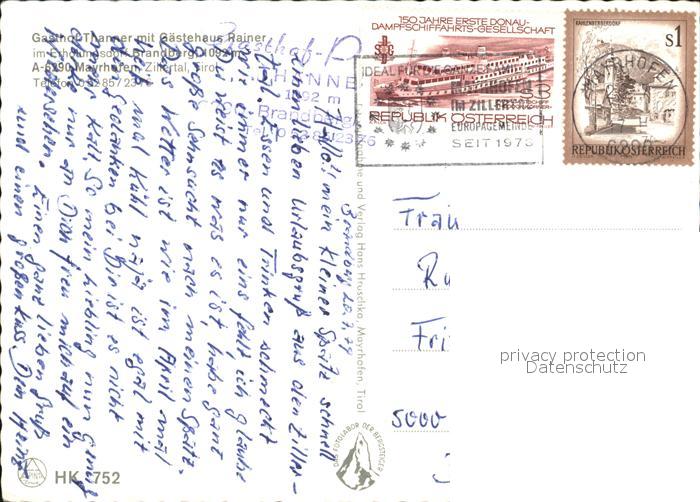 Gasthof Thanner mit Gästehaus Rainer
im Erholungsdorf Brandberg, 1092 m
A-6290 Mayrhofen, Zillertal, Tirol
Telefon 0 52 85 / 23 76
Gasthof-P
THANNE
1092
Brandberg
150 JAHRE ERSTE DONAU-
DAMPFSCHIFFAHRTS-GESELLSCHAFT
REPUBLIK ÖSTERREICH
IDEAL FÜR DIE GANZE
MAYRHOFEN
IM ZILLERTAL
EUROPAGEMEINDE
SEIT 1973
KAHLENBERGERDORF
S1
REPUBLIK ÖSTERREICH
MAYRHOFEN
Brandberg 20.4.79
Hallo! mein kleiner Spatz schnell
einen lieben Urlaubsgruß aus den Ziller-
tal. Essen und Trinken schmeckt
wie immer nur eins fehlt ich glaube
Du weist es was es ist, habe ganz
große Sehnsucht nach meinen Spatz.
Das Wetter ist wie im April mal
und Kühl naja ist egal mit
Gedanken bei Dir ist es nicht
Kalt. So mein Liebling nun genug
nur an Dich freu mich auf ein
Wiedersehen. Einen ganz lieben Gruß
und einen großen Kuss Dein Heinz
und Verlag Hans Hruschka, Mayrhofen, Tirol
DAS FOTOLABOR DER BERGSTEIGER
Frau
Ru
Fri
5000
privacy protection
Datenschutz
HK 752